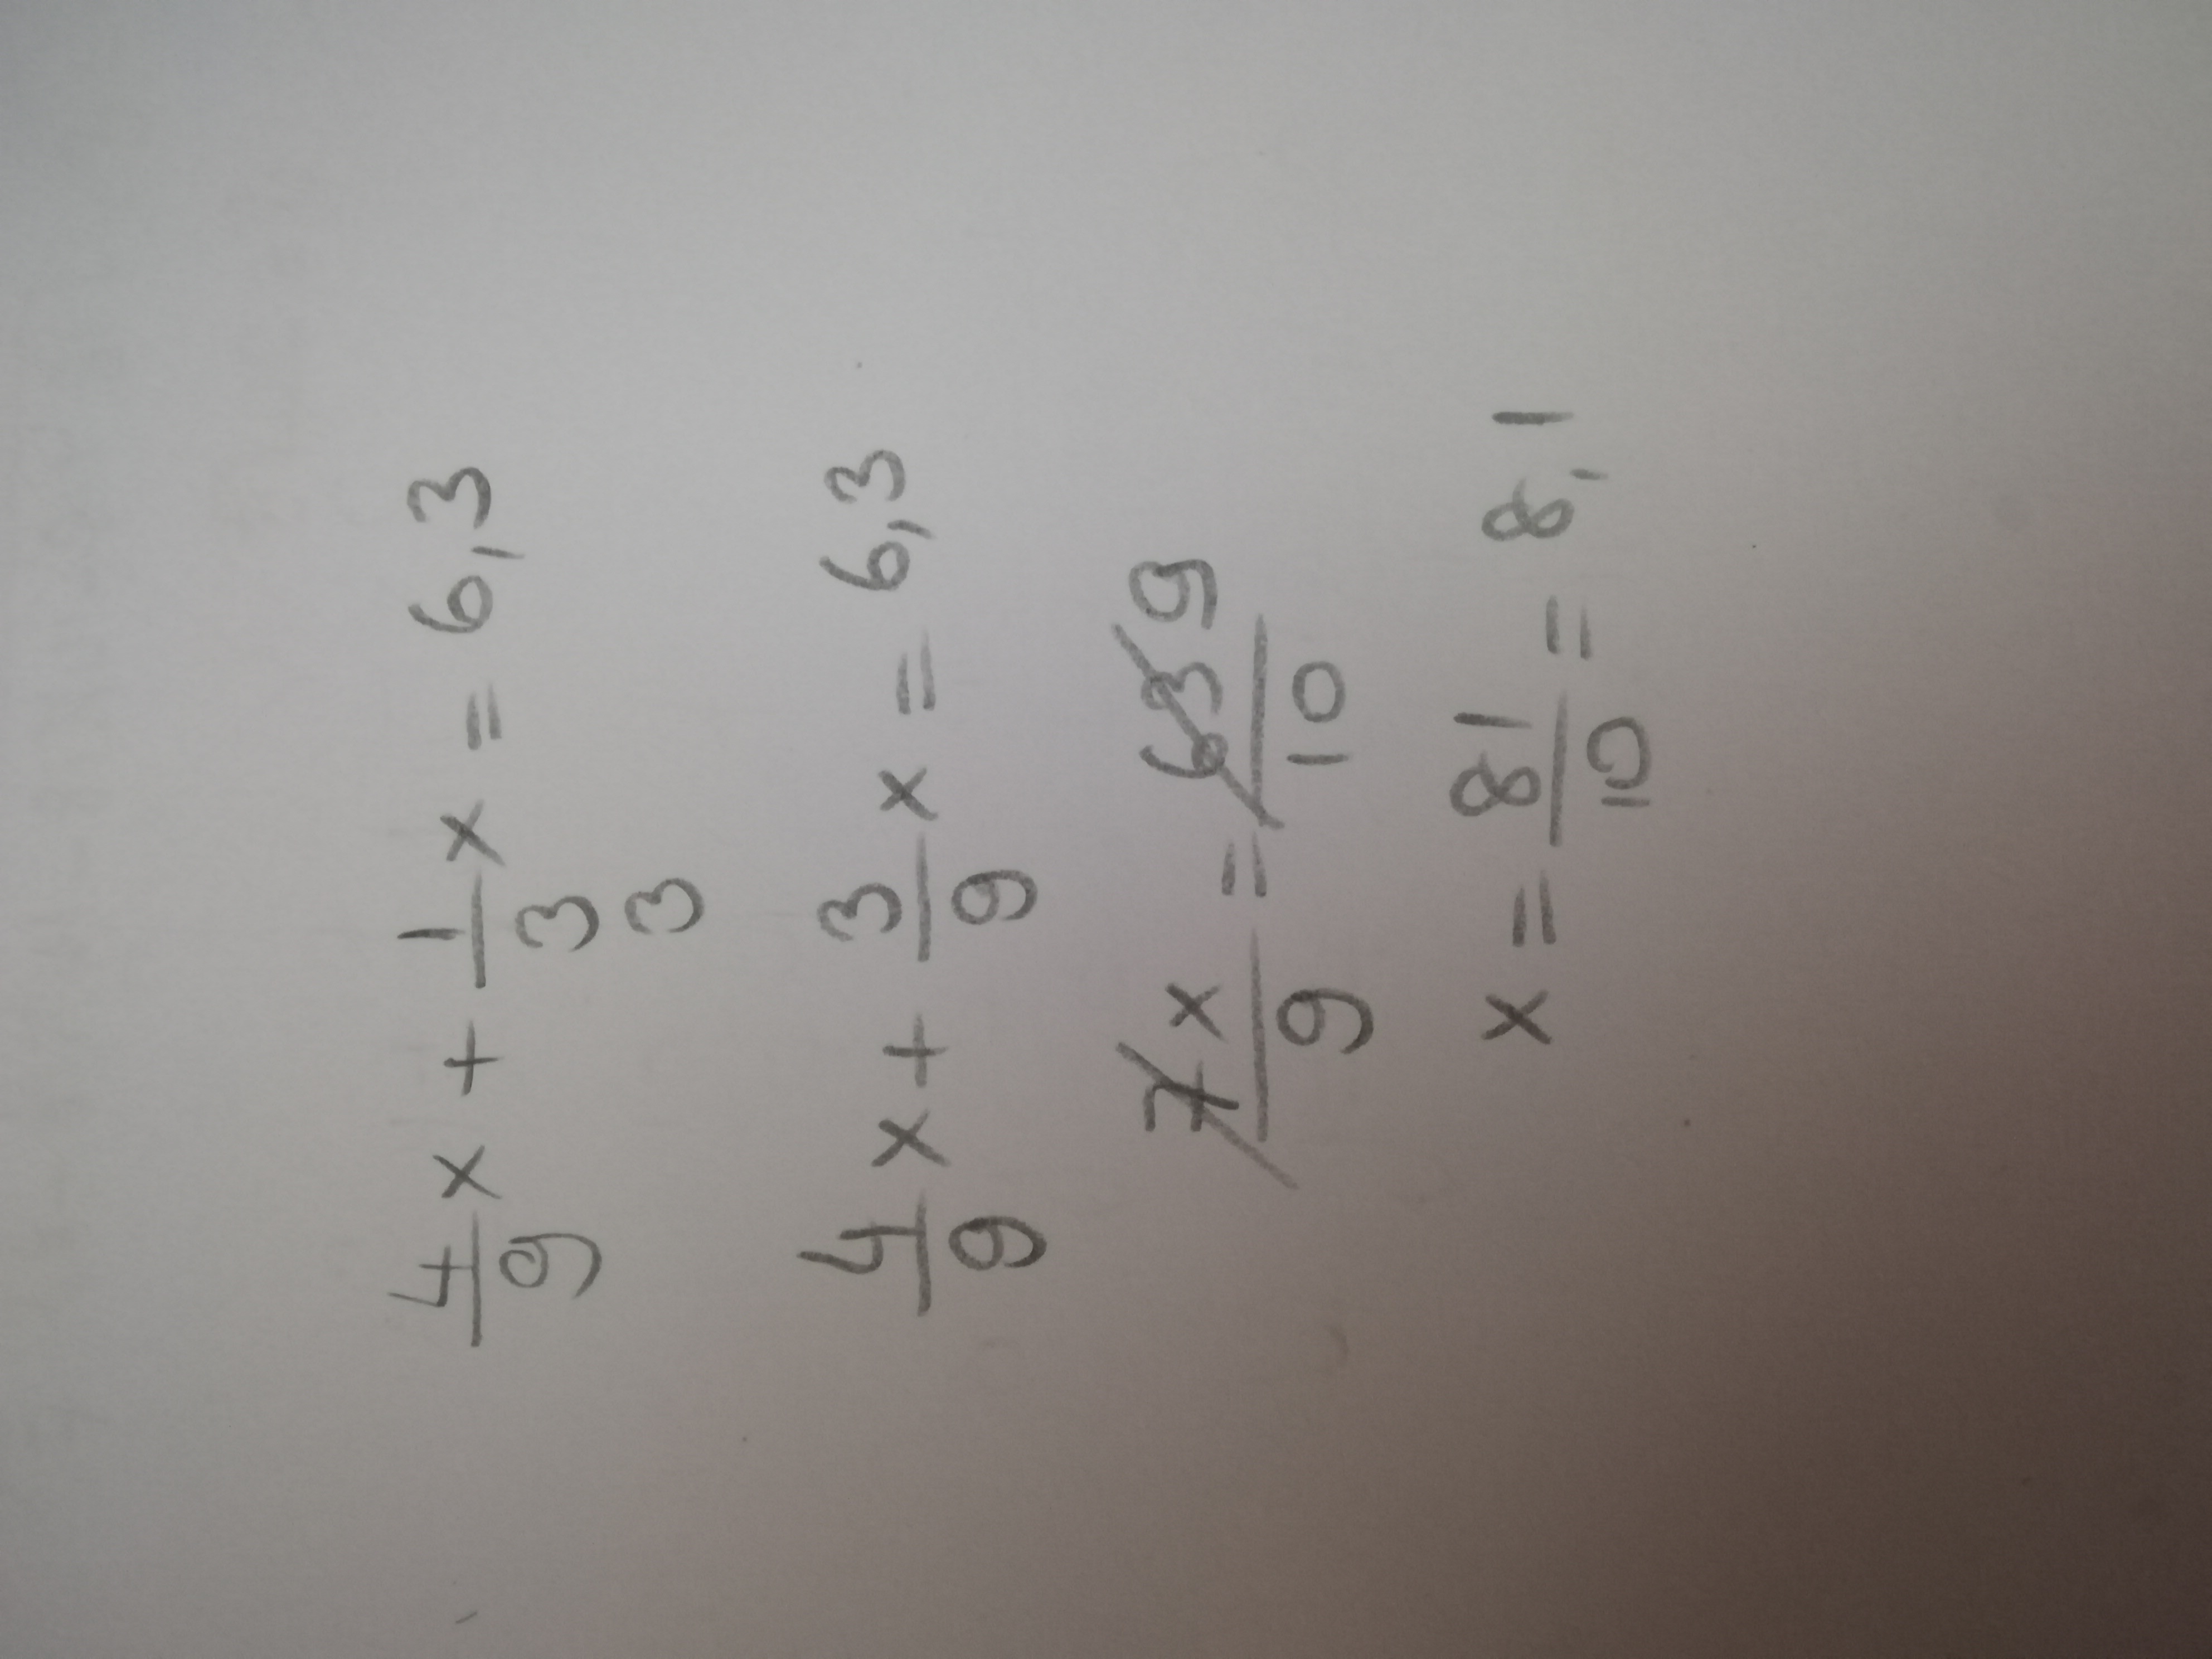 4/9 x + 1/3 x = 6,3
3
4/9 x + 3/9 x = 6,3
7x/9 = 63/10 9
x = 81/10 = 8,1